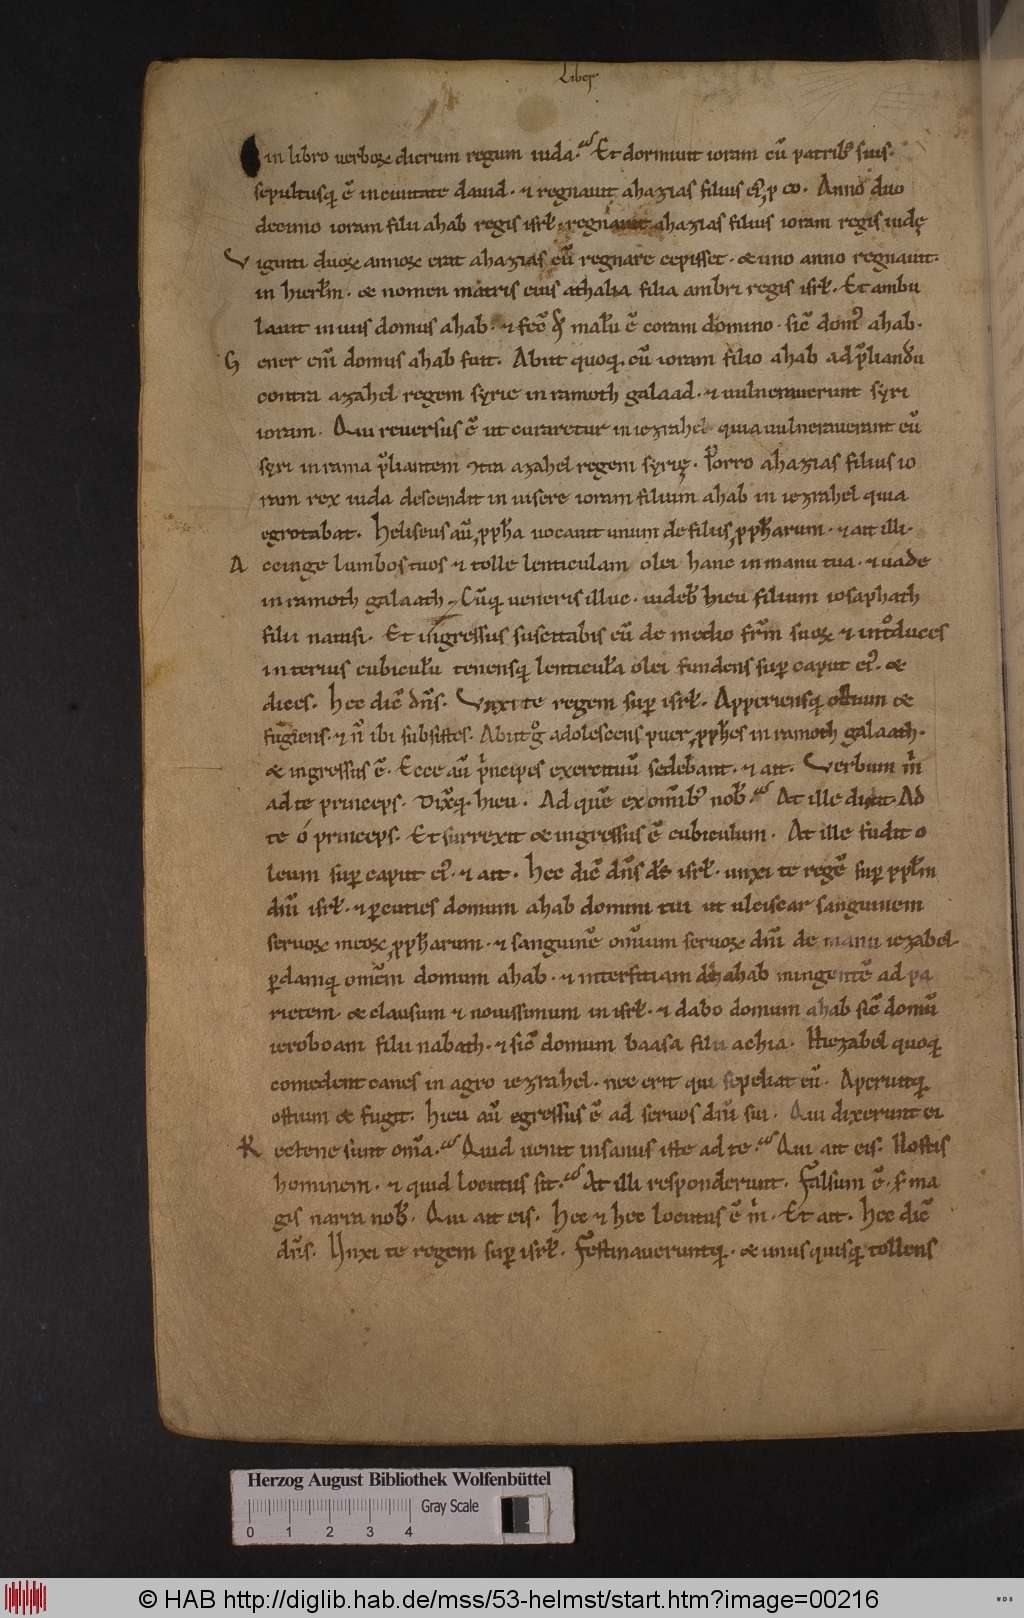 Liber
in libro verboꝝ dierum regum iuda. Et dormiuit ioram cū patribꝰ suis.
sepultusq; ē in ciuitate dauid. ⁊ regnauit ahazias filius eiꝰ ꝓ eo. Anno duo
decimo ioram filii ahab regis isrł. regnauit ahazias filius ioram regis iudę
Viginti duoꝝ annoꝝ erat ahazias cū regnare cepisset. & uno anno regnauit.
in hierłm. & nomen matris eius athalia filia ambri regis isrł. Et ambu
lauit in uiis domus ahab. ⁊ fec̄ qđ malū ē coram domino. sic̄ domꝰ ahab.
Gener eni̅ domus ahab fuit. Abiit quoq; cū ioram filio ahab ad p̄liandū
contra azahel regem syrie in ramoth galaad. ⁊ uulnerauerunt syri
ioram. Qui reuersus ē ut curaretur in iezrahel quia uulnerauerant eū
syri in rama p̄liantem ɔtra azahel regem syrię. Porro ahazias filius io
ram rex iuda descendit inuisere ioram filium ahab in iezrahel quia
egrotabat. Heliseus aū ꝓpħa uocauit unum de filiis ꝓpħarum. ⁊ ait illi.
Accinge lumbos tuos ⁊ tolle lenticulam olei hanc in manu tua. ⁊ uade
in ramoth galaath. Cūq; ueneris illuc. uideb̄ hieu filium iosaphath
filii namsi. Et ingressus suscitabis eū de medio fr̄m suoꝝ ⁊ intͦduces
interius cubiculū tenensq; lenticulā olei fundens suꝑ caput eiꝰ. &
dices. Hec dic̄ dn̄s. Vnxi te regem suꝑ isrł. Apperiensq; ostium &
fugiens. ⁊ n̄ ibi subsistes. Abiit gͦ adolescens puer ꝓpħes in ramoth galaath.
& ingressus ē. Ecce aū principes exercituū sedebant. ⁊ ait. Verbum m̄
ad te princeps. Dixitq; hieu. Ad quē ex omībꝰ nob̄. At ille dixit. Ad
te ó princeps. Et surrexit & ingressus ē cubiculum. At ille fudit o
leum suꝑ caput eiꝰ. ⁊ ait. Hec dic̄ dn̄s ds̄ isrł. unxi te regē suꝑ ppłm
dn̄i isrł. ⁊ ꝑcuties domum ahab domini tui ut ulciscar sanguinem
seruoꝝ meoꝝ ꝓpħarum. ⁊ sanguinē omīum seruoꝝ dn̄i de manu iezabel.
ꝑdamq; omēm domum ahab. ⁊ interficiam de ahab mingentē ad pa
rietem & clausum ⁊ nouissimum in isrł. ⁊ dabo domum ahab sic̄ domū
ieroboam filii nabath. ⁊ sic̄ domum baasa filii achia. Hiezabel quoq;
comedent canes in agro iezrahel. nec erit qui sepeliat eū. Aperuitq;
ostium & fugit. Hieu aū egressus ē ad seruos dn̄i sui. Qui dixerunt ei
Rectene sunt om̄a. Quid uenit insanus iste ad te. Qui ait eis. Nostis
hominem. ⁊ quid locutus sit. At illi responderunt. Falsum ē. s; ma
gis narra nob̄. Qui ait eis. Hec ⁊ hec locutus ē m̄. Et ait. Hec dic̄
dn̄s. Unxi te regem suꝑ isrł. Festinaueruntq;. & unus quisq; tollens
Herzog August Bibliothek Wolfenbüttel
Gray Scale
0 1 2 3 4
© HAB http://diglib.hab.de/mss/53-helmst/start.htm?image=00216